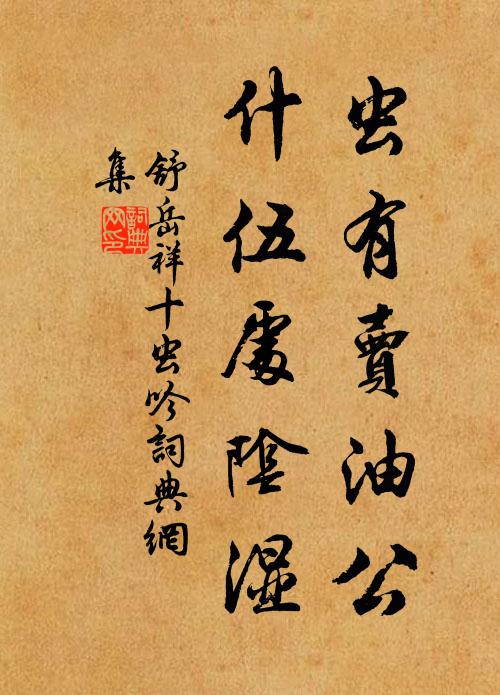 虫有賣油公
什伍處陰湿
舒岳祥十虫吟詞典網
集
詞典網印